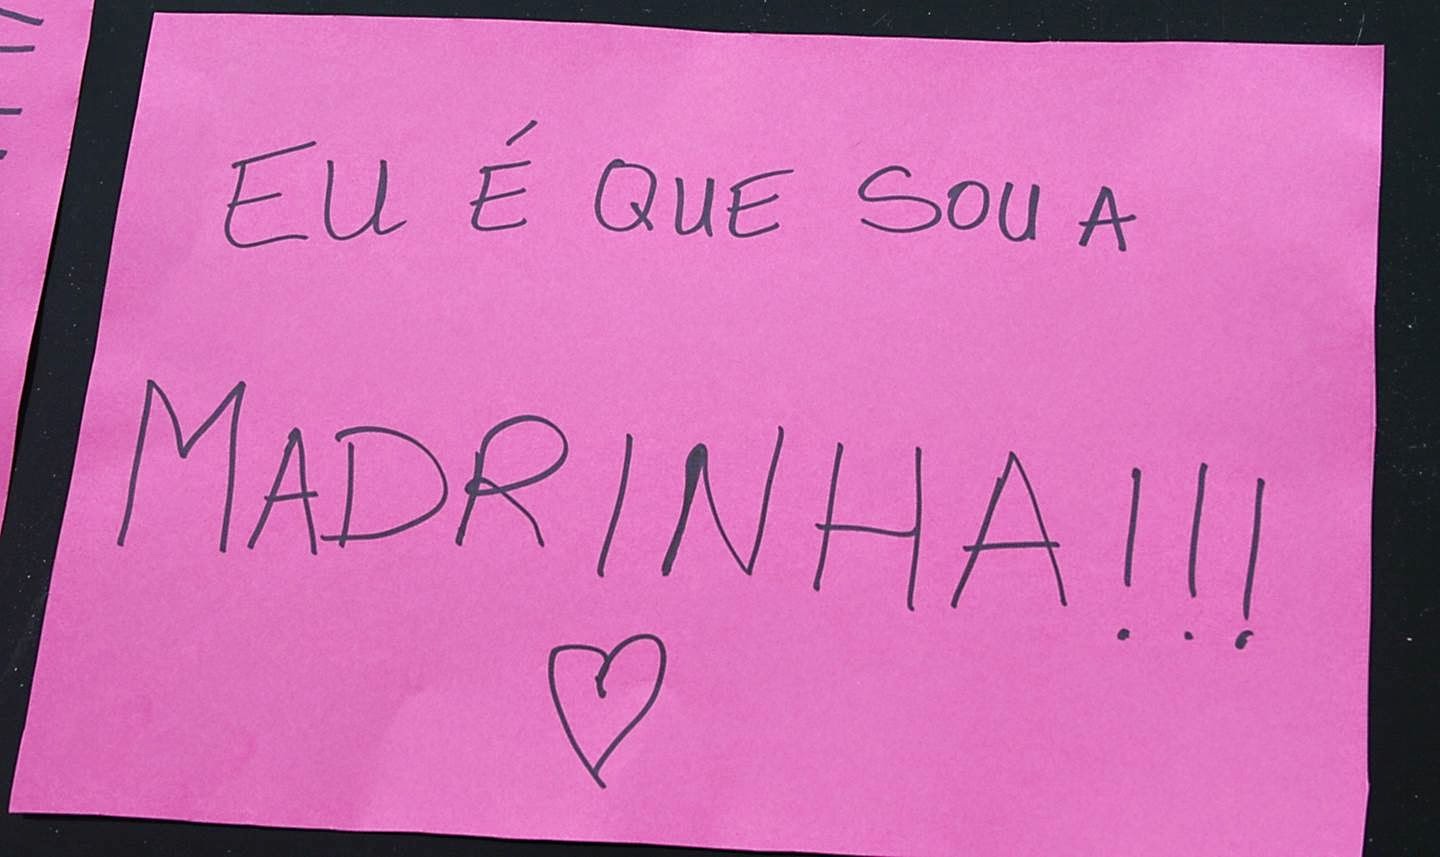 EU É QUE SOU A
MADRINHA!!!